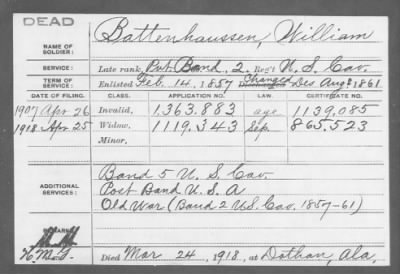 DEAD
NAME OF SOLDIER: Battenhaussen, William
SERVICE: Late rank, Pvt. Band, 2 Reg't U. S. Cav.
TERM OF SERVICE: Enlisted Feb. 14, 1857 Changed Discharged Des Aug. 1861
DATE OF FILING. CLASS. APPLICATION NO. LAW. CERTIFICATE NO.
1907 Apr 26 Invalid, 1,363.883 age 1139,085
1918. Apr 25 Widow, 1119,343 Sep. 865,523
Minor,
ADDITIONAL SERVICES: Band 5 U. S. Cav.
Post Band U. S. A
Old War (Band 2 U.S. Cav. 1857-61)
REMARKS:
Died Mar 24, 1918, at Dothan, Ala,